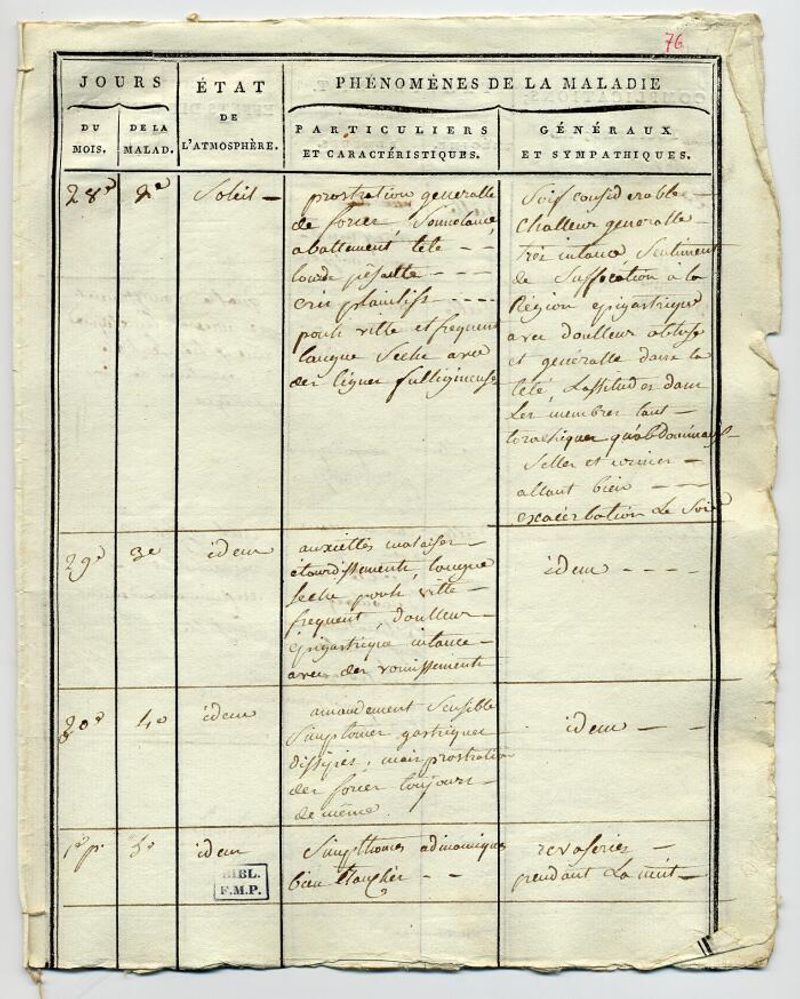 76
JOURS
ÉTAT
DE
L'ATMOSPHÈRE.
PHÉNOMÈNES DE LA MALADIE
DU
MOIS.
DE LA
MALAD.
PARTICULIERS
ET CARACTÉRISTIQUES.
GÉNÉRAUX
ET SYMPATHIQUES.
28e 2e Soleil —
prostration generalle
de forces, Somnolance,
abattement, tété — —
lourde pésante — — —
cris plaintifs - - - -
pouls ville et frequent
langue Seche avec
des lignes fulligineuses
Soif considerable —
Challeur generalle —
trés intance, Sentiment
de Suffocation à la
Région epigastrique
avec doulleur obtuse
et genéralle dans la
tété, Lassitudes dans
Les membres tant —
torachiques qu'abdominaux —
Selles et urines —
allant bien — — —
exacérbation Le Soir
29e 3e idem
anxiettés malaises —
étourdissements, langue
seche pouls ville —
frequent, doulleur —
épigastrique intance —
avec des vomissements
idem - - - -
30e 4e idem
amandement Sensible
Simptomes gastriques
dissipés, mais prostration
des forces toujours —
de même.
idem — —
1er p. 5e idem
Simpthomes adinamiques
bien tranchés - -
revaseries —
pendant La nuit —
BIBL.
F.M.P.